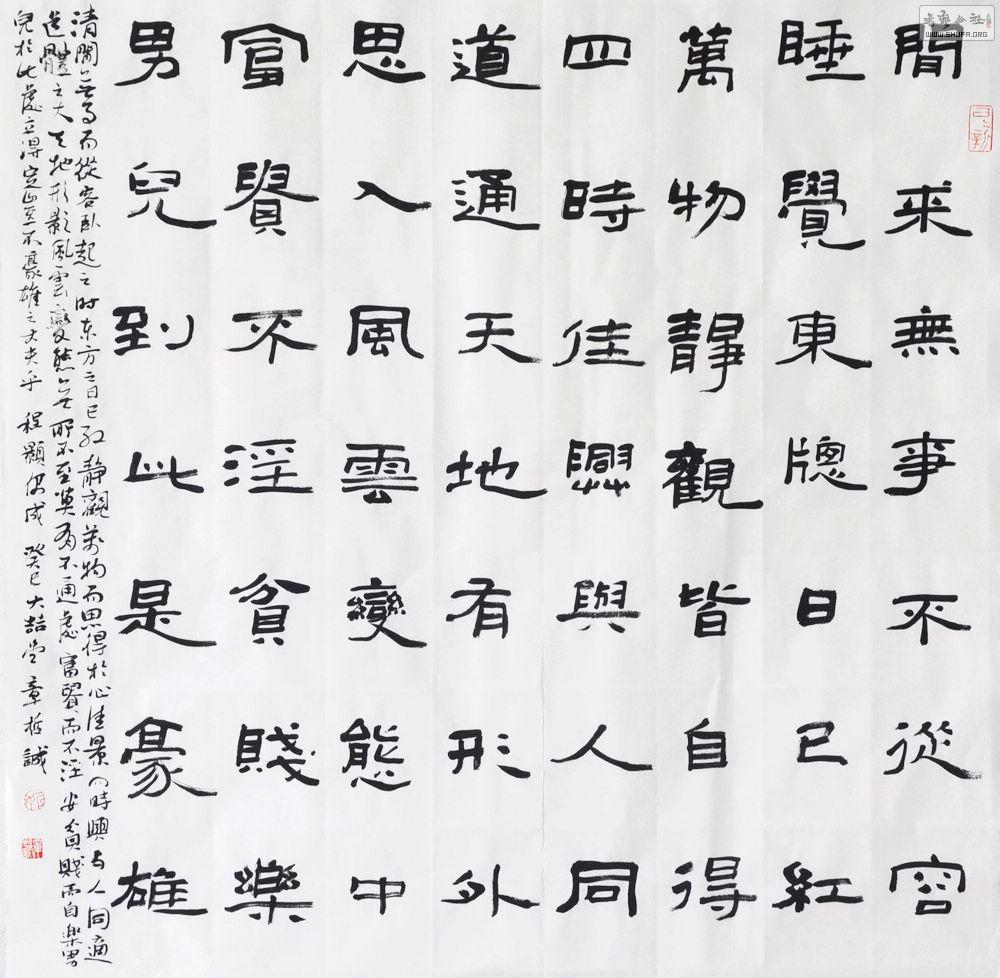 間來無事不從容
睡覺東牕日已紅
萬物靜觀皆自得
四時佳興與人同
道通天地有形外
思入風雲變態中
富貴不淫貧賤樂
男兒到此是豪雄
清閒無事而從容臥起之時东方之日已紅靜觀萬物而思得於心佳景四時興与人同適
道體之大天地形影風雲變態無所不至莫有不通處富貴而不淫安貧賤而自樂男
兒於此處立得定豈不豪雄之丈夫乎 程顥偶成 癸巳大喆堂章哲誠
WWW.SHJFA.ORG